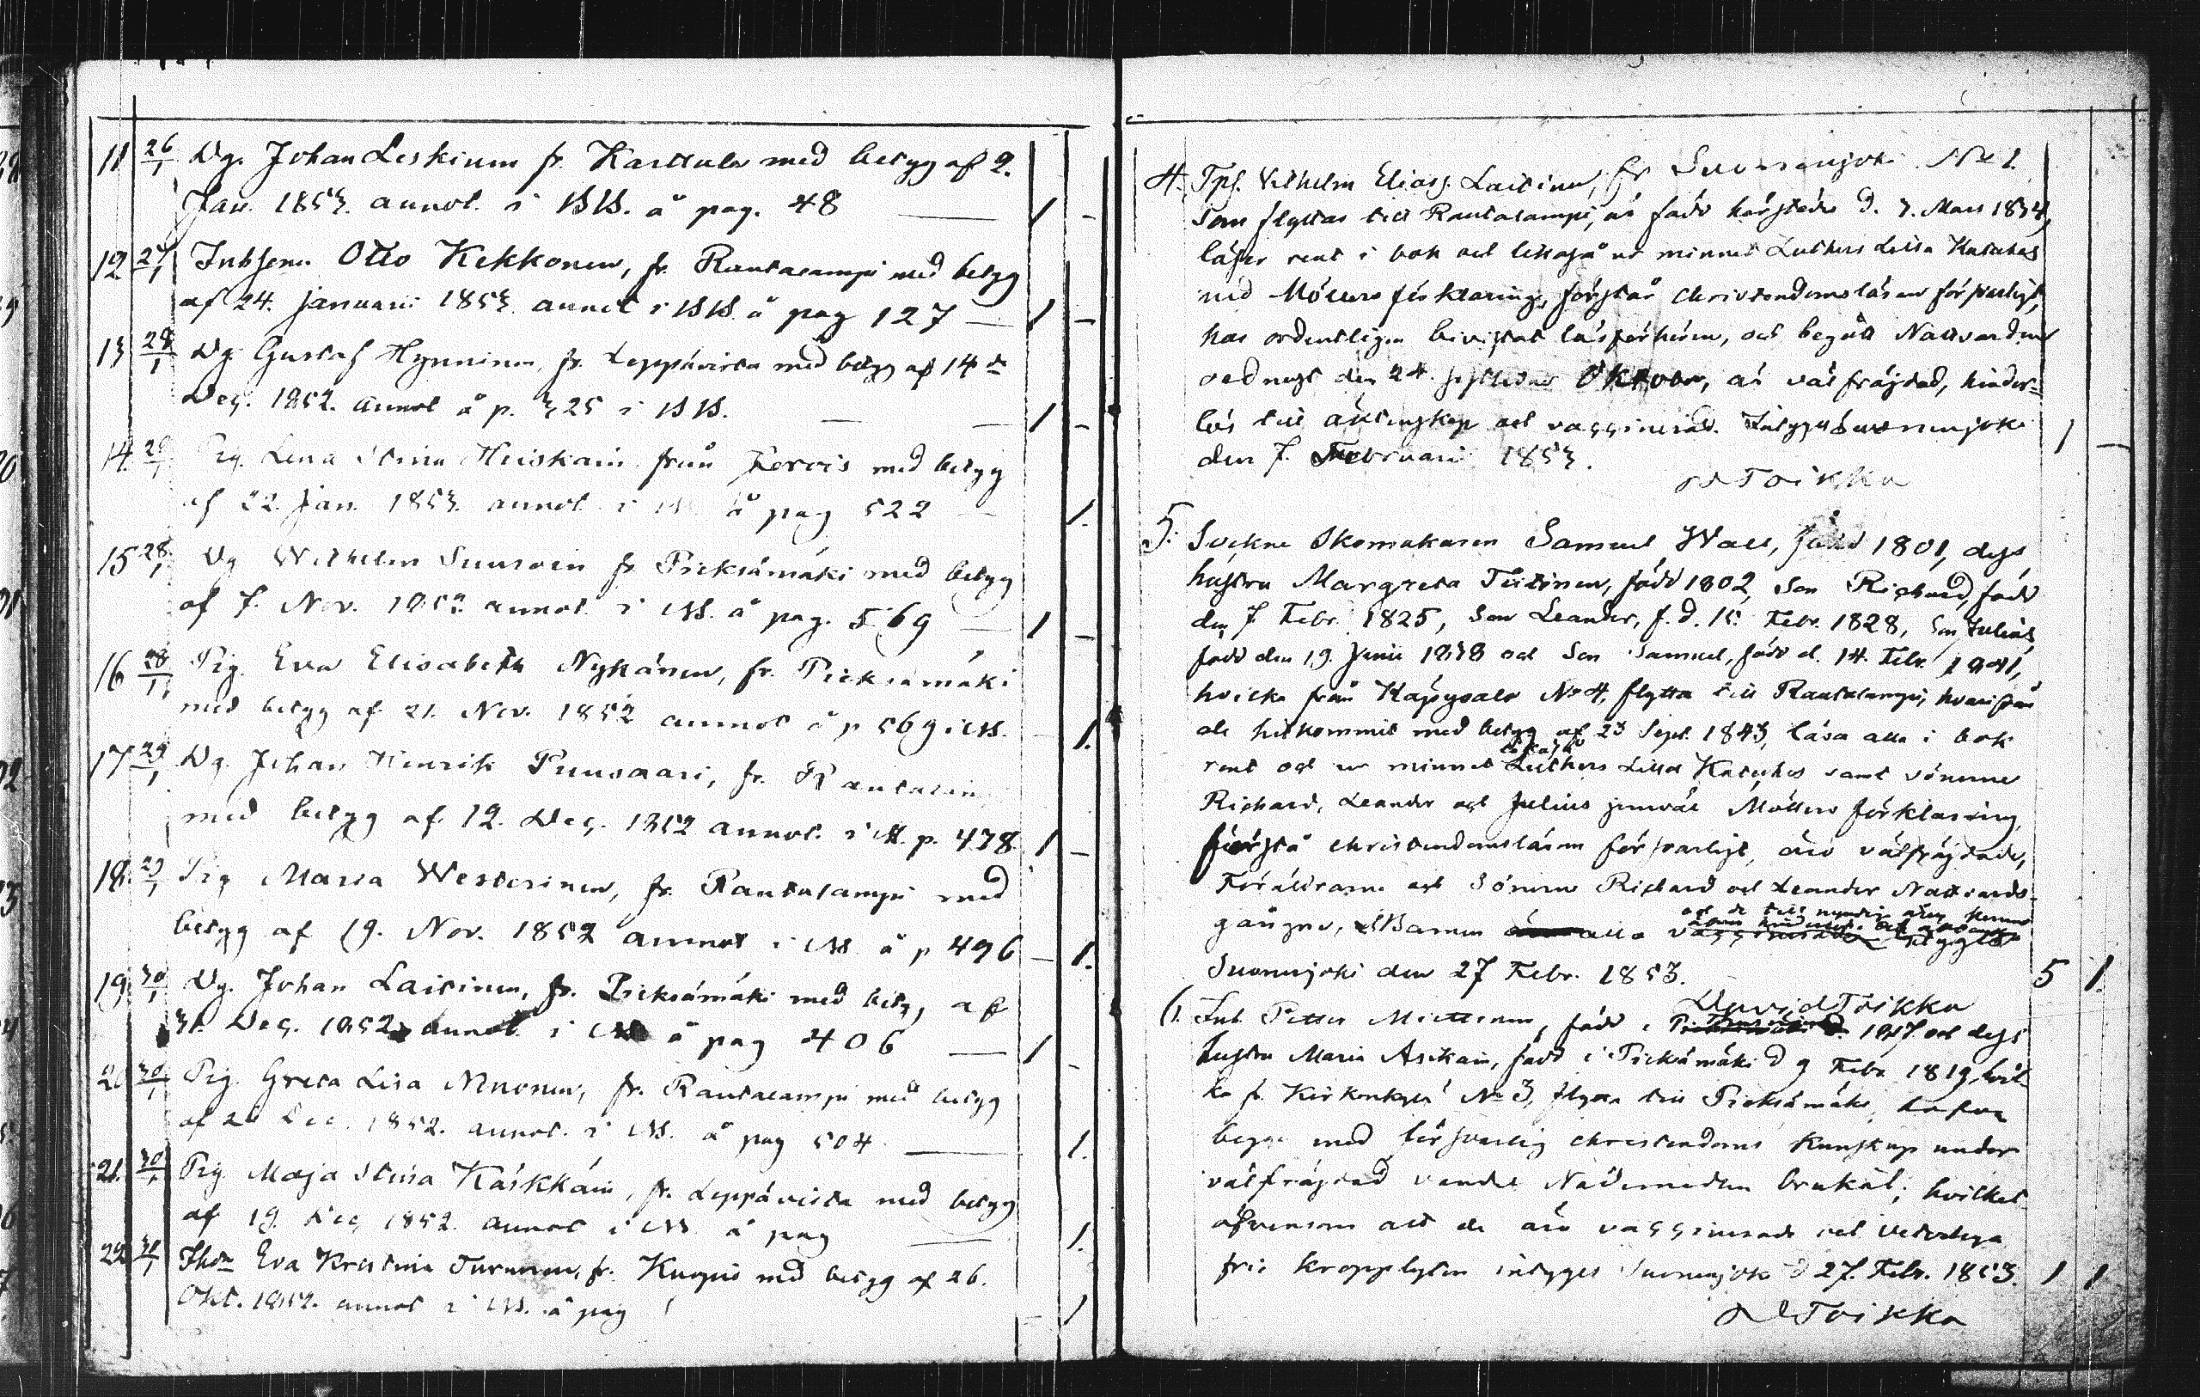 11 26/1 Dg. Johan Leskinen fr. Karttula med betyg af 2.
Jan. 1853. annot. i NB. å pag. 48 — 1 -
12 27/1 Otto Kekkonen, fr. Rautalampi med betyg
af 24. januarii 1853. annot i NB. å pag 127 — 1 -
13 28/1 Dg. Gustaf Hynninen, fr. Leppävirta med betyg af 14de
Dec. 1852. annot å p. 325 i NB. — 1 -
14 28/1 Pig. Lena Stina Heiskain från Jorois med betyg
af 22. Jan. 1853. annot i NB å pag 522 — 1.
15 28/1 Dg Wilhelm Suuroin fr Pieksämäki med betyg
af 7. Nov. 1852 annot. i NB. å pag. 569 — 1 -
16 28/1 Pig. Eva Elisabeth Nykänen, fr. Pieksämäki
med betyg af 21. Nov. 1852 annot å p 569 i NB. 1.
17 29/1 Dg. Johan Henrik Puusaari, fr. Rautalam
med betyg af 12. Dec. 1852 annot. i NB. p. 478. 1 -
18. 29/1 Pig Maria Westerinen, fr. Rautalampi med
betyg af 19. Nov. 1852 annot i NB å p 496 — 1.
19. 30/1 Dg. Johan Laitinen, fr. Pieksämäki med betyg af
31. Dec. 1852 annot i NB å pag 406 — 1 -
20 30/1 Pig. Greta Lisa Ninonen, fr. Rautalampi med betyg
af Dec. 1852. annot. i NB. å pag 504 — 1.
21. 30/1 Pig Maja Stina Käikkäin, fr. Leppävirta med betyg
af 19. Dec 1852. annot i NB å pag — 1.
22 31/1 Eva Kristina Turunen, fr. Kuopio med betyg af 26.
Okt. 1852. annot i NB. å pag — 1
4. Vilhelm Eliass. Laitinen, fr Suonenjoki No 1.
som flyttar till Rautalampi, är född härstädes d. 7. Mars 1834,
läser rent i bok och likaså ur minnet Luthers Lilla Kateches
med Möllers förklaring, förstår christendomsläran försvarligt,
har ordentligen bevistat läsförhören, och begått Nattvarden
sednast den 24. Oktober, är välfräjdad, hinder-
lös till äktenskap och vaccinerad. Intygas Suonenjoki
den 7. Februari 1853. 1 —
D Toikka
5. Sockne Skomakaren Samuel Wall, född 1801, dess
hustru Margreta Tiitinen, född 1802, Son Richard, född
den 7 Febr. 1825, Son Leander, f. d. 15 Febr. 1828, Son Julius,
född den 19. Junii 1838 och Son Samuel, född d. 14. Febr. 1841,
hvilka från Käpysalo No 4, flytta till Rautalampi, hvarifrån
de hitkommit med betyg af 23 Sept. 1843, läsa alla i bok
rent och ur minnet likaså Luthers Lilla Kateches samt sönerne
Richard, Leander och Julius jemväl Möllers förklaring,
förstå christendomsläran försvarligt, äro välfräjdade,
Föräldrarne och Sönerne Richard och Leander Nattvards-
gångne, Barnen alla vaccinerade
Suonenjoki den 27 Febr. 1853. 5 1.
David Toikka
6. Inh Petter Miettinen, född i 1817. och dess
hustru Maria Asikain, född i Pieksämäki d 9 Febr. 1819, hvil
ka fr. Kirkonkylä No 3, flytta till Pieksämäki, hafva
begge med försvarlig christendoms kunskap under
välfräjdad vandel Nådemedlen brukat; hvilket
äfvensom att de äro vaccinerade och veterligen
frie kroppslyten intygas Suonenjoki d 27. Febr. 1853. 1 1
D Toikka